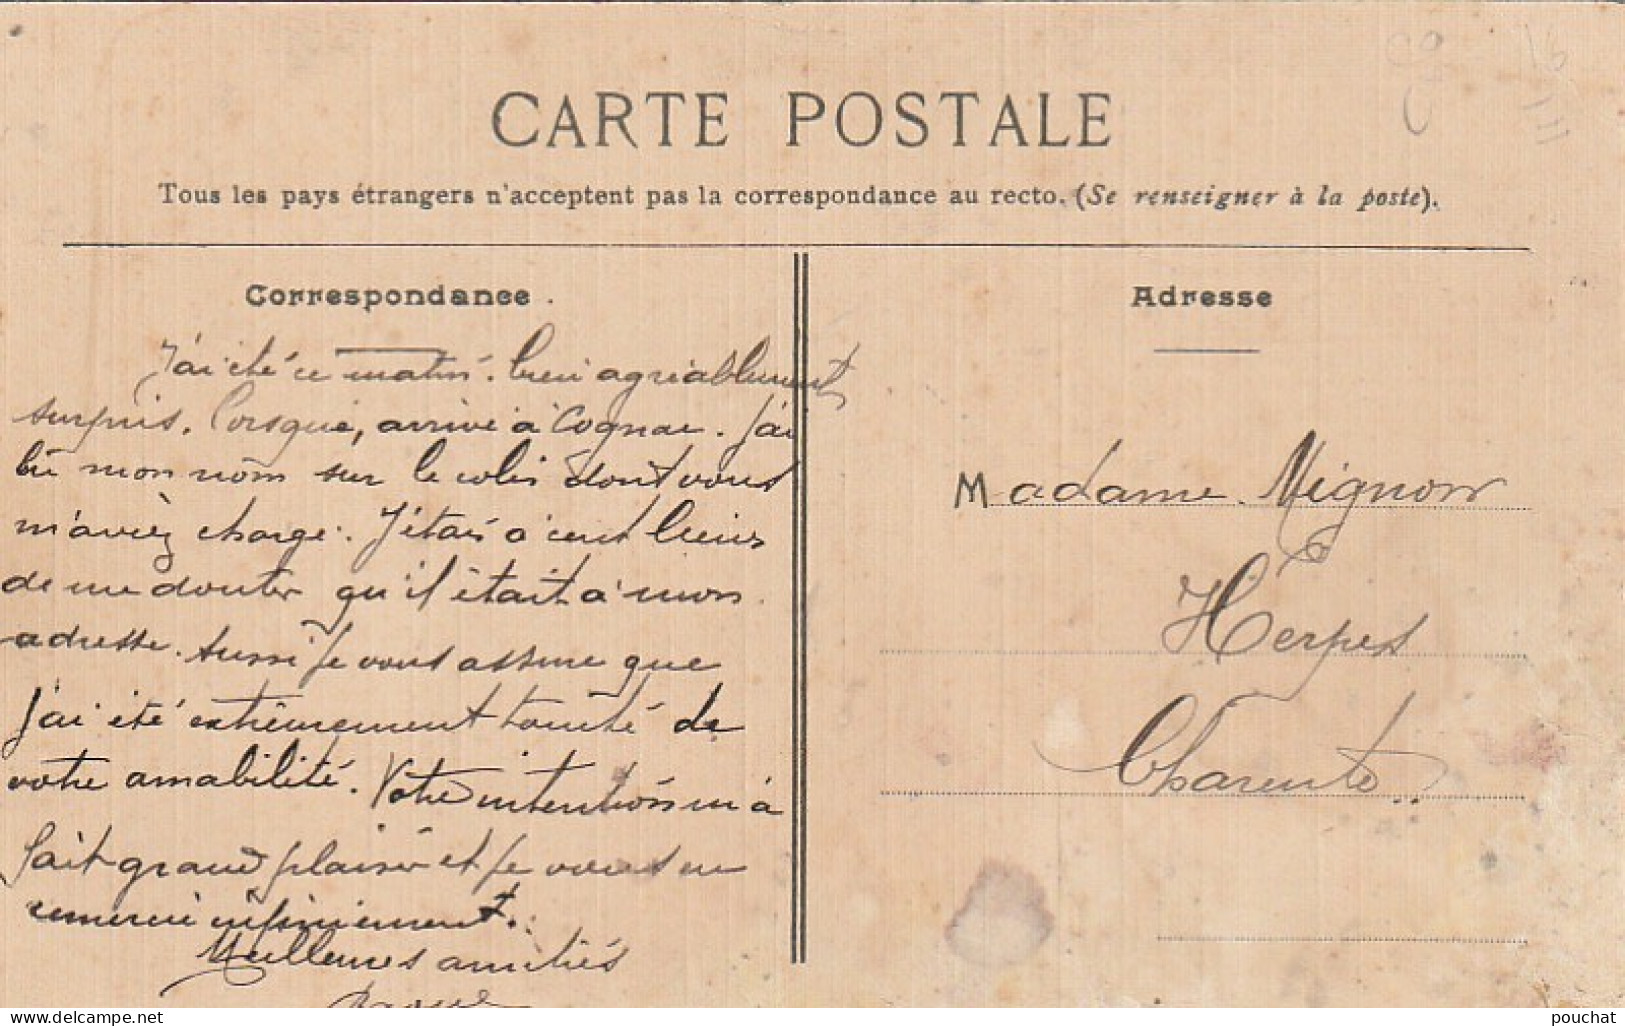 CARTE POSTALE
Tous les pays étrangers n'acceptent pas la correspondance au recto. (Se renseigner à la poste).
Correspondance.
Adresse
J'ai été ce matin bien agréablement
surpris, lorsque, arrivé à Cognac. J'ai
lû mon nom sur le colis dont vous
m'aviez chargé. J'étais à cent lieues
de me douter qu'il était à mon
adresse. Aussi je vous assure que
j'ai été extrêmement touché de
votre amabilité. Votre intention m'a
fait grand plaisir et je vous en
remercie infiniement.
Meilleures amitiés
Madame Mignon
Herpes
Charente
www.delcampe.net
pouchat